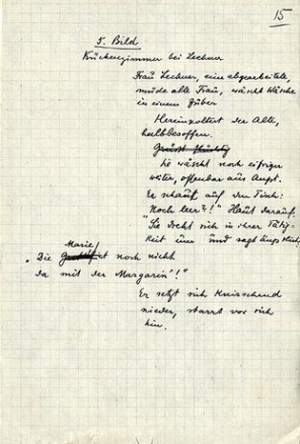 15
5. Bild
Küchenzimmer bei Lechner
Frau Lechner, eine abgearbeitete,
müde alte Frau, wäscht Wäsche
in einem Zuber
Hereinpoltert der Alte,
halbbesoffen.
Sie wäscht noch eifriger
weiter, offenbar aus Angst.
Er schaut auf den Tisch:
"Noch leer?!" Haut darauf.
Sie dreht sich in ihrer Tätig-
keit um und sagt ängstlich:
Marie
"Die ist noch nicht
da mit der Margarin'!"
Er setzt sich knirschend
nieder, starrt vor sich
hin.